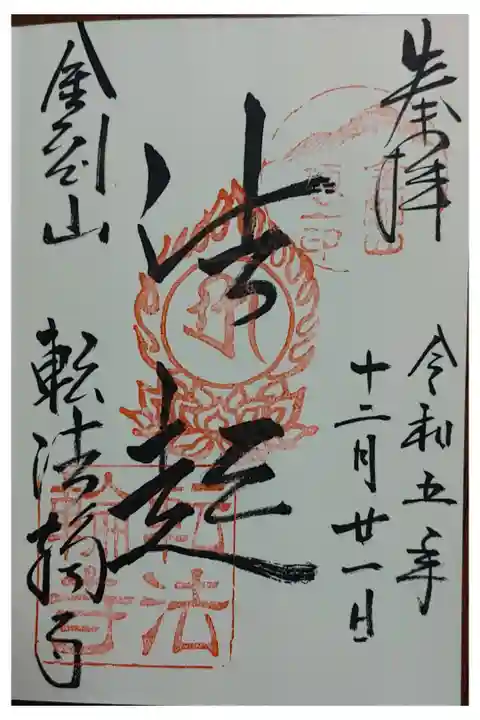 奉拝
令和五年
十二月廿一日
法起
金剛山
転法輪寺
転法
輪寺